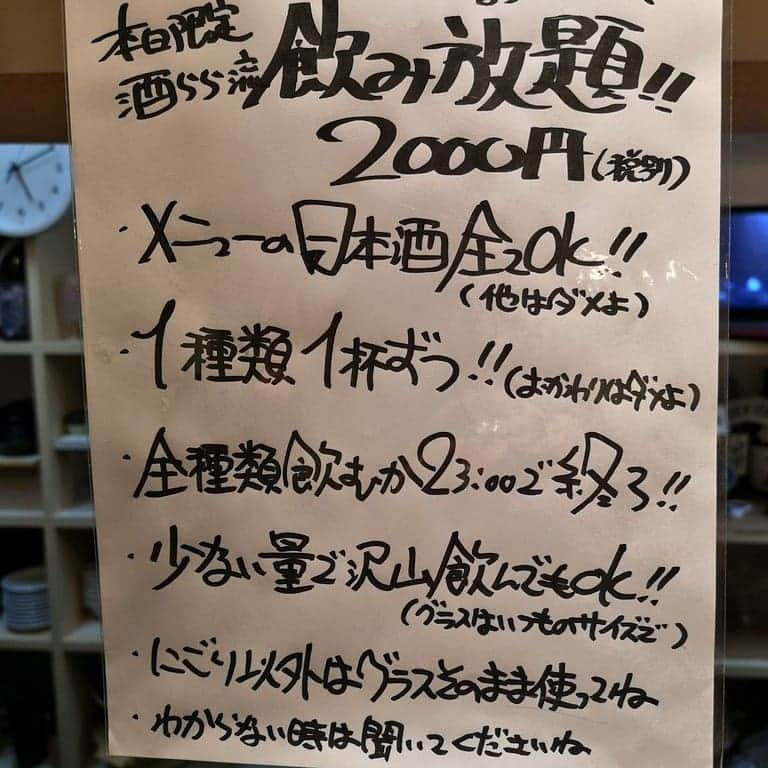 本日限定
酒らら流 飲み放題!!
2000円(税別)
・メニューの日本酒全てok!!
(他はダメよ)
・1種類1杯ずつ!!(おかわりはダメよ)
・全種類飲むか23:00で終了!!
・少ない量で沢山飲んでもok!!
(グラスはいつものサイズで)
・にごり以外はグラスそのまま使ってね
・わからない時は聞いてくださいね